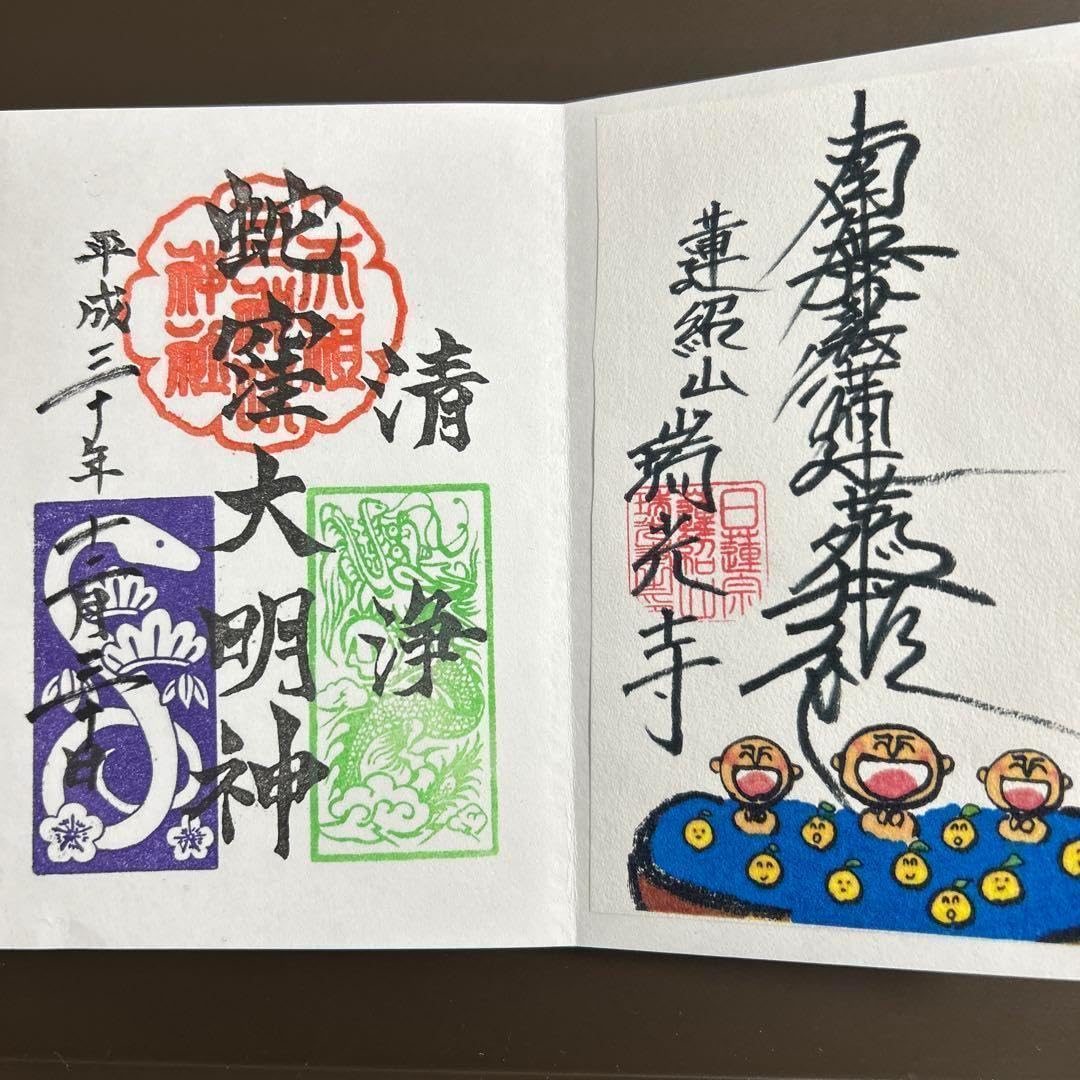 南無妙法蓮華経
蓮紹山 瑞光寺
日蓮宗
清浄
蛇窪大明神
平成三十年十二月三十日